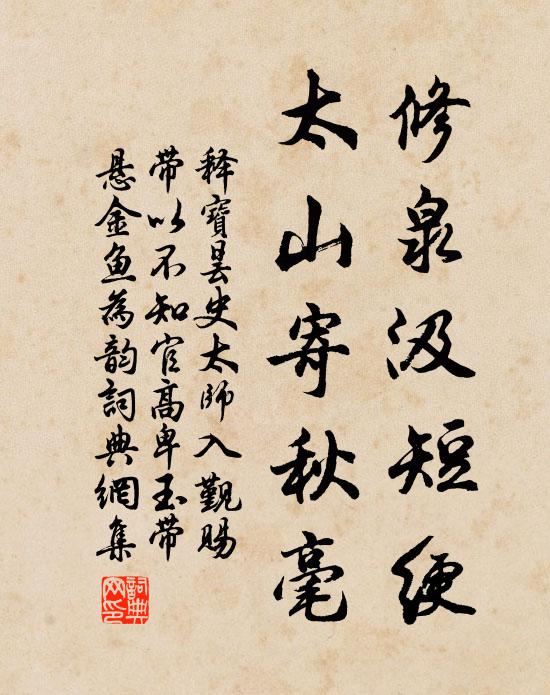 修泉汲短绠
太山寄秋毫
释寶曇史太师入觐賜
带以不知官高卑玉带
悬金鱼為韵詞典網集